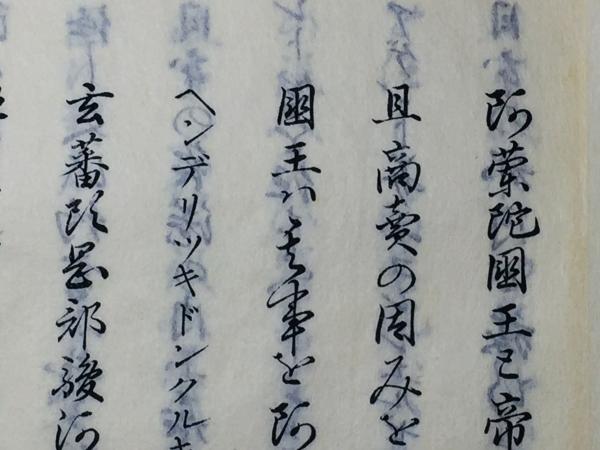 阿蘭陀國王と帝
且商賣の因みを
國王ハ其事を阿
ヘンデリツキドンクルキ
玄蕃頭岡部駿河